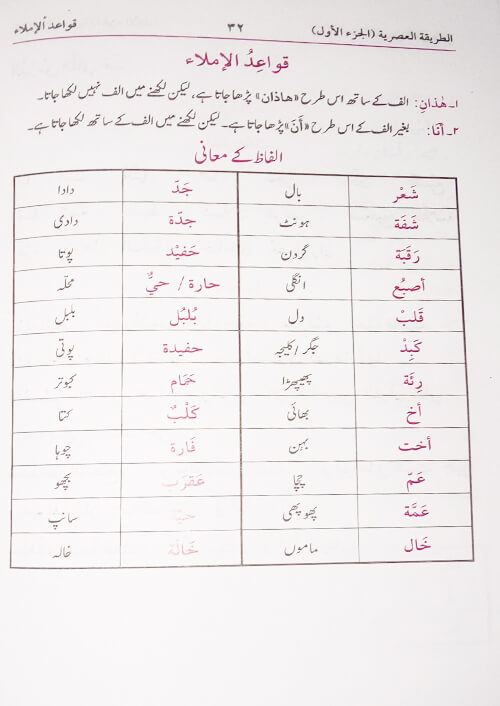 الطريقة العصرية (الجزء الأول) ٣٢ قواعد الإملاء
قواعِدُ الإملاء
۱۔ هٰذَانِ: الف کے ساتھ اس طرح «هاذان» پڑھا جاتا ہے، لیکن لکھنے میں الف نہیں لکھا جاتا۔
۲۔ أنَا: بغیر الف کے اس طرح «أَنَ» پڑھا جاتا ہے۔ لیکن لکھنے میں الف کے ساتھ لکھا جاتا ہے۔
الفاظ کے معانی
شَعْر بال جَدّ دادا
شَفَة ہونٹ جدّة دادی
رَقَبَة گردن حَفيْد پوتا
أصبُع انگلی حارة / حيٌّ محلّہ
قَلبْ دل بُلبُل بلبل
كَبِدْ جگر/کلیجہ حفيدة پوتی
رِئَة پھیپھڑا حَمَام کبوتر
أخ بھائی كَلْبٌ کتا
أخت بہن فَارة چوہا
عَمّ چچا عَقرَب بچھو
عَمَّة پھوپھی حيّة سانپ
خَال ماموں خَالَة خالہ